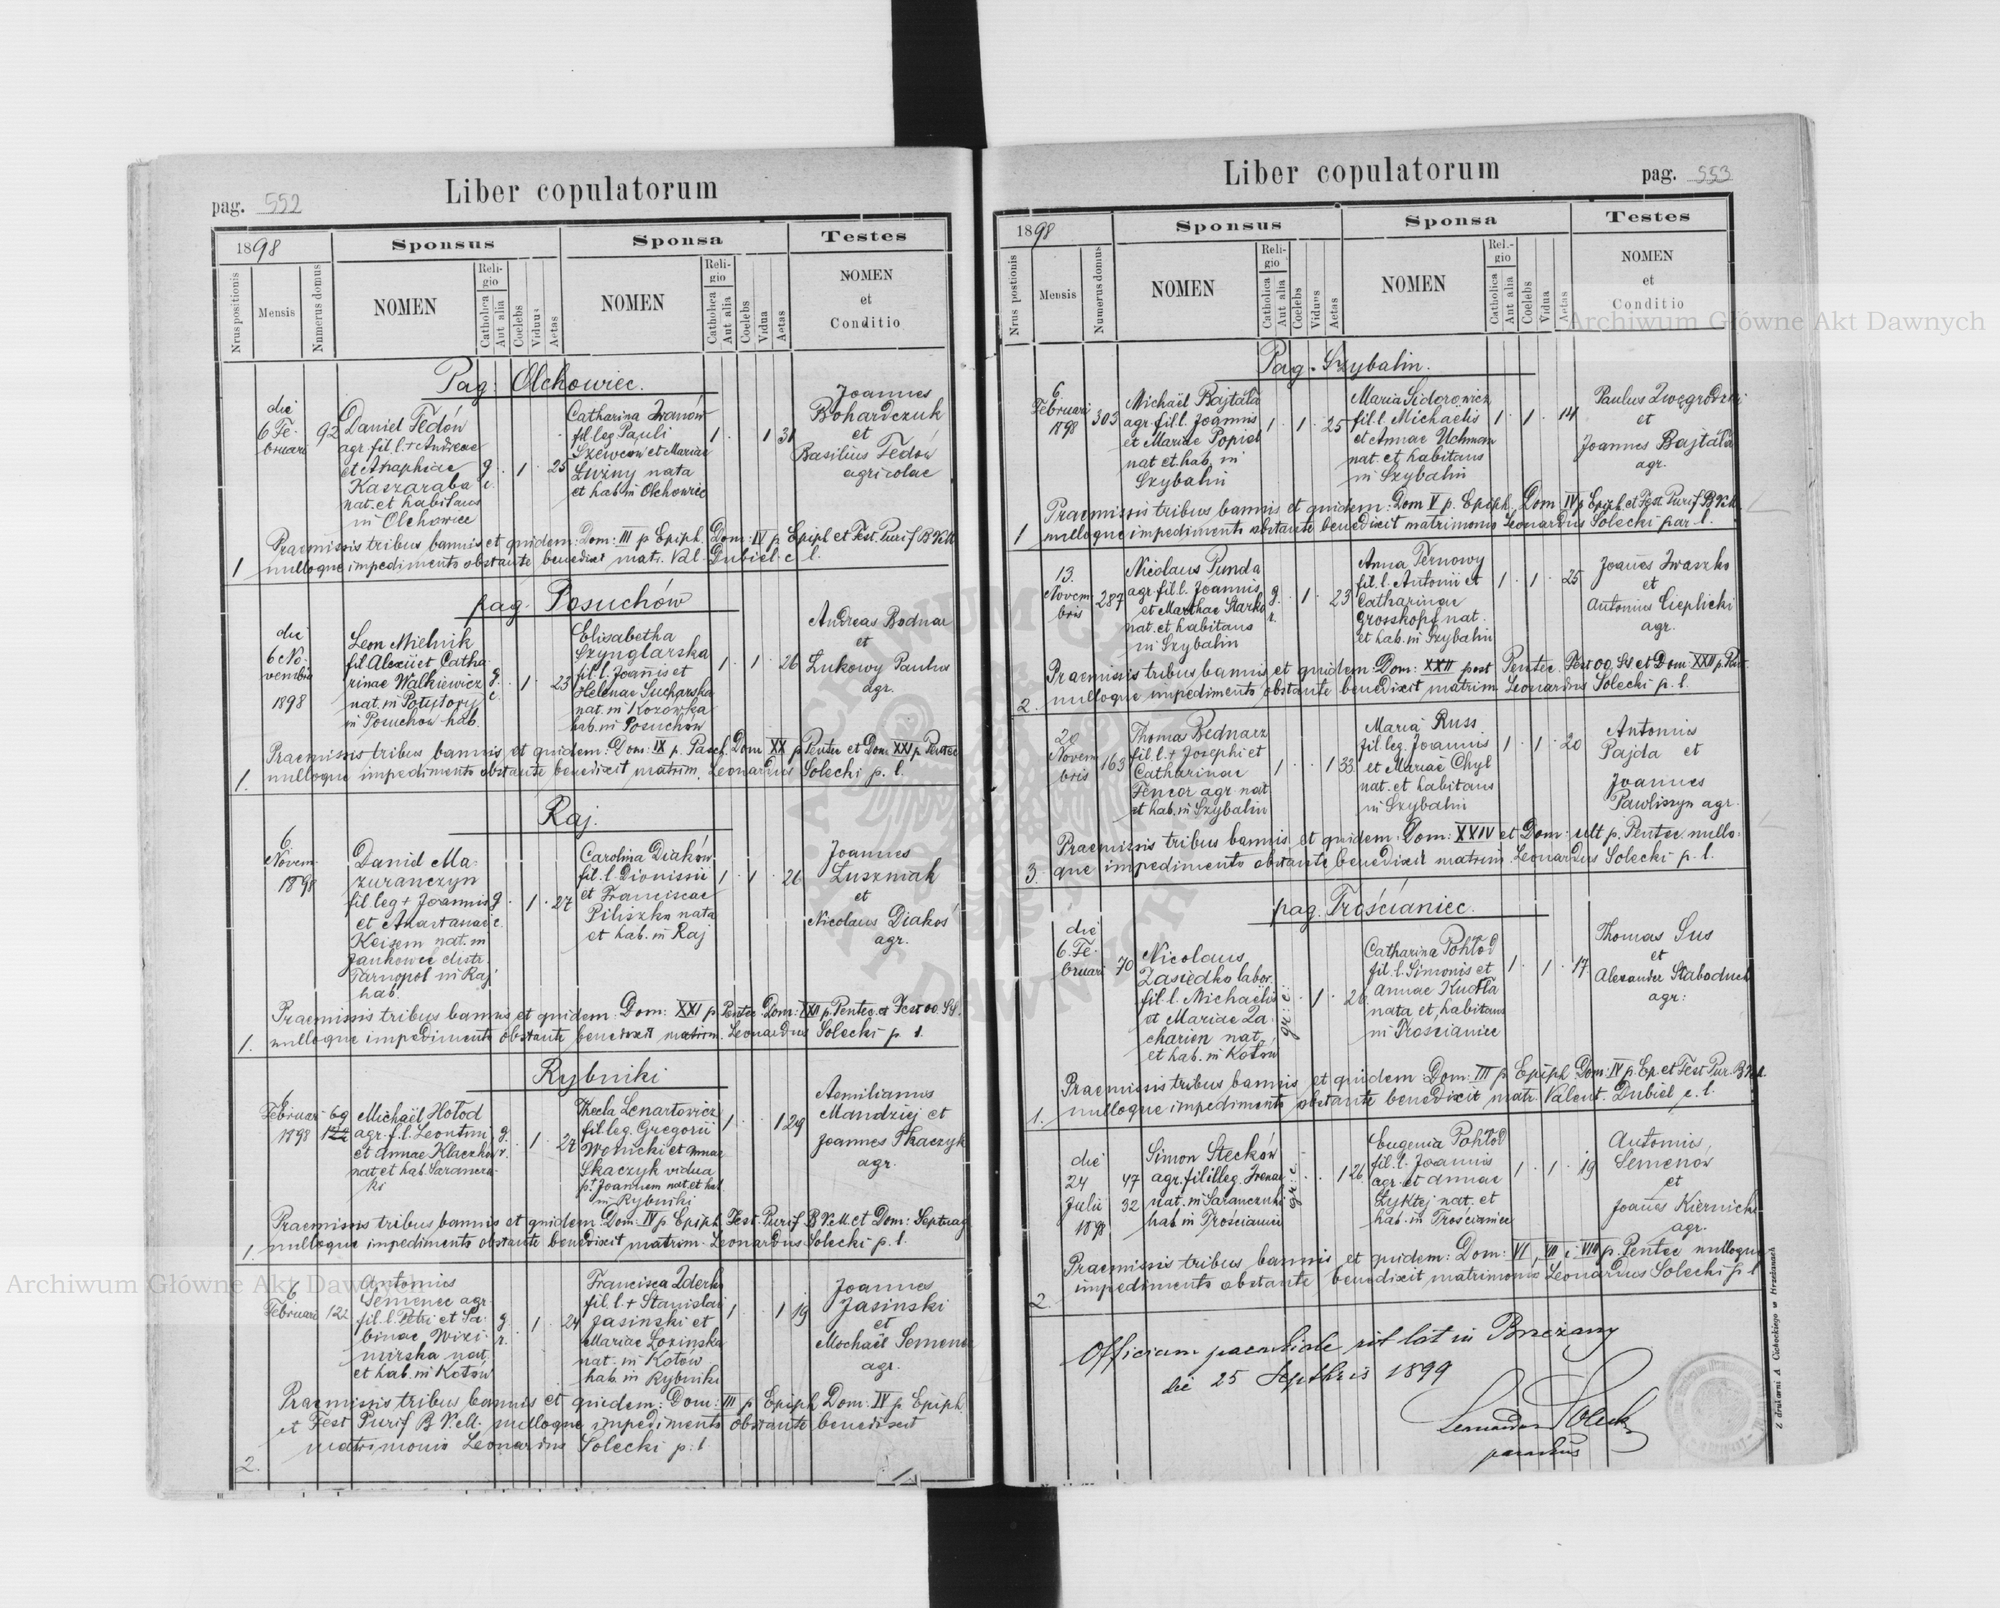 Liber copulatorum
pag. 552
1898
Sponsus
Sponsa
Testes
Nrus positionis
Mensis
Numerus domus
NOMEN
Religio
Catholica
Aut alia
Coelebs
Viduus
Aetas
NOMEN
Religio
Catholica
Aut alia
Coelebs
Vidua
Aetas
NOMEN
et
Conditio
Pag. Olchowiec.
die
6 Fe-
bruari
92
Daniel Fedów
agr. fil. l. + Andreae
et Anaphiae
Kaszaraba
nat. et habitans
in Olchowiec
g.
c.
1
25
Catharina Iwanów
fil. leg. Pauli
Szewców et Mariae
Luzny nata
et hab. in Olchowiec
1
1
31
Joannes
Bohardczuk
et
Basilius Fedów
agricolae
Praemissis tribus bannis et quidem: Dom: III p Epiph. Dom: IV p. Epiph et Fest. Purif B.V.M
1 nulloque impedimento obstante benedixit matr. Val. Dubiel c. l.
pag. Posuchów
die
6 No-
vembris
1898
Leon Mielnik
fil Alexii et Catha-
rinae Walkiewicz
nat. in Potutory
in Posuchow hab.
g.
c
1
23
Elisabetha
Szynglarska
fil. l. Joannis et
Helenae Sucharska
nat. in Kozowka
hab. in Posuchow
1
1
26
Andreas Bodnar
et
Lukowy Paulus
agr.
Praemissis tribus bannis et quidem: Dom: IX p. Pasch. Dom XX p Pentec et Dom. XXI p Pentec
1. nulloque impedimento obstante benedixit matrim. Leonardus Solecki p. l.
Raj.
6
Novem.
1898
Daniel Ma-
zuranczyn
fil leg + Joannis
et Anastasiae
Keisem nat. in
Jankowce distr.
Tarnopol in Raj
hab.
g.
c.
1
27
Carolina Diaków
fil. l. Dionisii
et Franciscae
Piliszka nata
et hab. in Raj
1
1
26
Joannes
Luszniak
et
Nicolaus Diakoś
agr.
Praemissis tribus bannis et quidem: Dom: XXI p. Pentec Dom: XXII p. Pentec. et Fest OO. SS.
1. nulloque impedimento obstante benedixit matrim. Leonardus Solecki p. l.
Rybniki
6
Februari
1898
69
122
Michaël Hołod
agr. f. l. Leontini
et Annae Klaczków
nat et hab. Saranczu-
ki
g.
r.
1
27
Thecla Lenartowicz
fil. leg. Gregorii
Wonicki et Annae
Skaczyk vidua
p+ Joannem nat. et hab
in Rybniki
1
1
29
Aemilianus
Mandziej et
Joannes Tkaczyk
agr.
Praemissis tribus bannis et quidem Dom. IV p Epiph. Fest. Purif B.V.M. et Dom: Septuag
1. nulloque impedimento obstante benedixit matrim. Leonardus Solecki p. l.
6
Februari
122
Antonius
Semenec agr.
fil. l. Petri et Sa-
binae Wizi-
mirska nat.
et hab. in Kotów
g.
r.
1
24
Francisca Zderka
fil. l + Stanislai
Jasinski et
Mariae Lozinska
nat. in Kotow
hab. in Rybniki
1
1
19
Joannes
Jasinski
et
Michaël Semenec
agr.
Praemissis tribus bannis et quidem: Dom: III p Epiph. Dom. IV p Epiph.
et Fest Purif B.V.M. nulloque impedimento obstante benedixit
matrimonio Leonardus Solecki p. l
2.
Liber copulatorum
pag. 553
1898
Sponsus
Sponsa
Testes
Nrus postionis
Mensis
Numerus domus
NOMEN
Religio
Catholica
Aut alia
Coelebs
Viduus
Aetas
NOMEN
Rel.-gio
Catholica
Aut alia
Coelebs
Vidua
Aetas
NOMEN
et
Conditio
Pag. Szybalin.
6
Februari
1898
303
Michaël Bajtala
agr. fil. l. Joannis
et Mariae Popiel
nat. et. hab. in
Szybalin
1
1
25
Maria Sidorowicz
fil. l. Michaëlis
et Annae Uchman
nat. et habitans
in Szybalin
1
1
14
Paulus Zwegrodzki
et
Joannes Bajtala
agr.
Praemissis tribus bannis et quidem: Dom V p. Epiph. Dom IV p Epiph. et Fest. Purif B.V.M.
1 nulloque impedimento obstante benedixit matrimonio Leonardus Solecki par. l.
13.
Novem
bris
287
Nicolaus Punda
agr. fil. l. Joannis
et Marthae Starko
nat. et habitans
in Szybalin
g.
r.
1
23
Anna Ternowy
fil. l. Antonii et
Catharinae
Grosskopf nat.
et hab. in Szybalin
1
1
25
Joañes Iwaszko
et
Antonius Cieplicki
agr.
Praemissis tribus bannis et quidem: Dom: XXII post Pentec. Fest OO. SS et Dom: XXII p. Pen
2. nulloque impedimento obstante benedixit matrim. Leonardus Solecki p. l.
20
Novem
bris
163
Thomas Bednarz
fil. l. + Josephi et
Catharinae
Fencor agr. nat
et hab. in Szybalin
1
1
33
Maria Russ
fil. leg. Joannis
et Mariae Chyl
nat. et habitans
in Szybalin
1
1
20
Antonius
Pajda et
Joannes
Pawliszyn agr.
Praemissis tribus bannis et quidem: Dom: XXIV et Dom: ult p. Pentec. nullo-
3. que impedimento obstante benedixit matrim Leonardus Solecki p. l.
pag. Trościaniec.
die
6. Fe-
bruari
70
Nicolaus
Zasiedko labor.
fil. l. Michaëlis
et Mariae Za-
charien nat.
et hab. in Kotów
gr: c:
1
26
Catharina Pohłód
fil. l. Simonis et
Annae Kudła
nata et habitans
in Troscianiec
1
1
17
Thomas Sus
et
Alexander Słaboduch
agr:
Praemissis tribus bannis et quidem: Dom: III p Epiph. Dom: IV p. Ep. et Fest Pur. B.V.M.
1. nulloque impedimento obstante benedixit matr. Valent. Dubiel c. l.
die
24
Julii
1898
47
32
Simon Steców
agr. fil illeg. Irenae
nat. in Saranczuki
hab in Trościaniec
gr: c:
1
26
Eugenia Pohłód
fil. l. Joannis
agr. et Annae
Zyktej nat. et
hab. in Trościaniec
1
1
19
Antonius
Semenow
et
Joañes Kiernicki
agr.
Praemissis tribus bannis et quidem: Dom: VI, VII i VIII p. Pentec nulloque
2. impedimento obstante benedixit matrimonio Leonardus Solecki p. l
Officium parochiale rit lat in Brzeżany
die 25 Septbris 1899
Leonardus Solecki
parochus
Z drukarni A Cichockiego w Brzeżanach
Archiwum Główne Akt Dawnych
Archiwum Główne Akt Dawnych